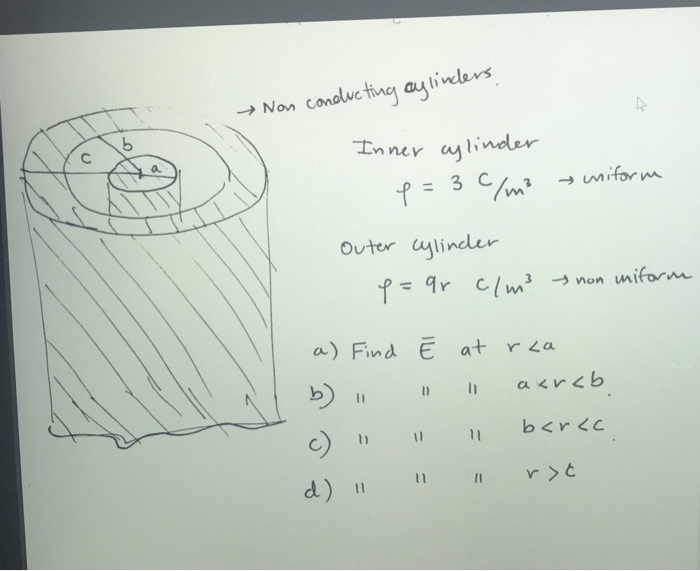 → Non conducting cylinders.
b
c
a
Inner cylinder
ρ = 3 C/m³ → uniform
Outer cylinder
ρ = 9r C/m³ → non uniform
a) Find Ē at r < a
b) " " " a < r < b.
c) " " " b < r < c.
d) " " " r > c